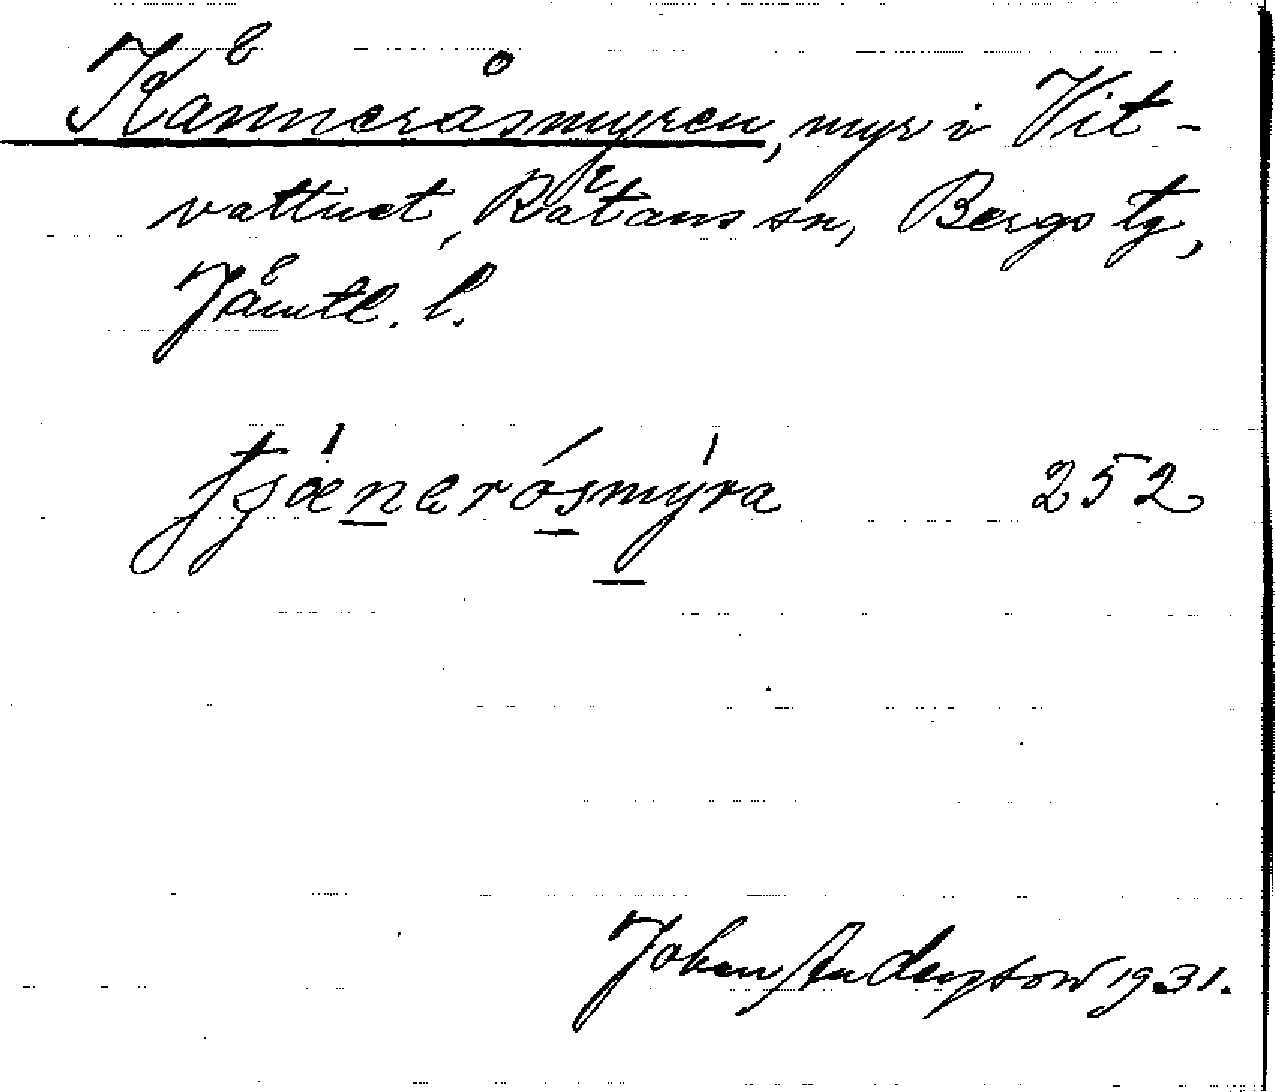 Känneråsmyren, myr i Vit-
vattnet, Rätans sn, Bergs tg,
Jämtl. l.
tjǽnerósmýra 252
Johan Anderson 1931.